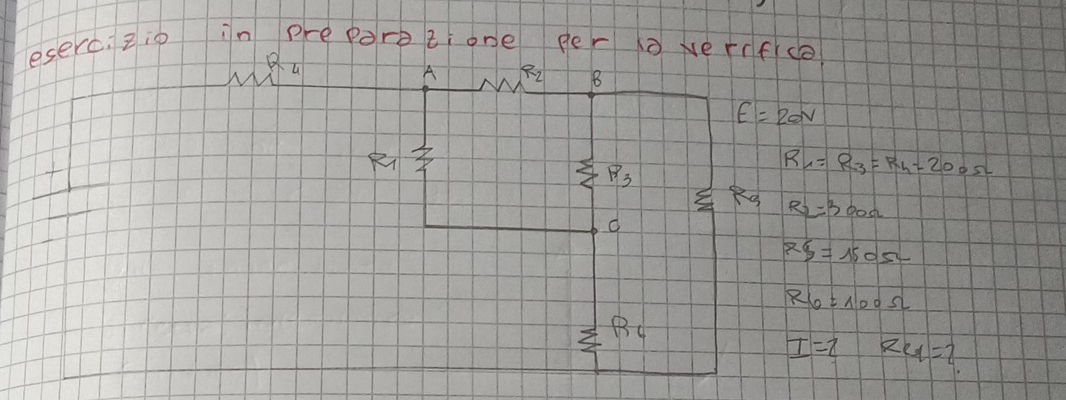 esercizio in preparazione per la verifica
R4 A R2 B
E = 20V
R1 = R3 = R4 = 200Ω
R1 R3
R2 = 300Ω
C
R5 = 150Ω
R6 = 100Ω
R6
I = ? Req = ?